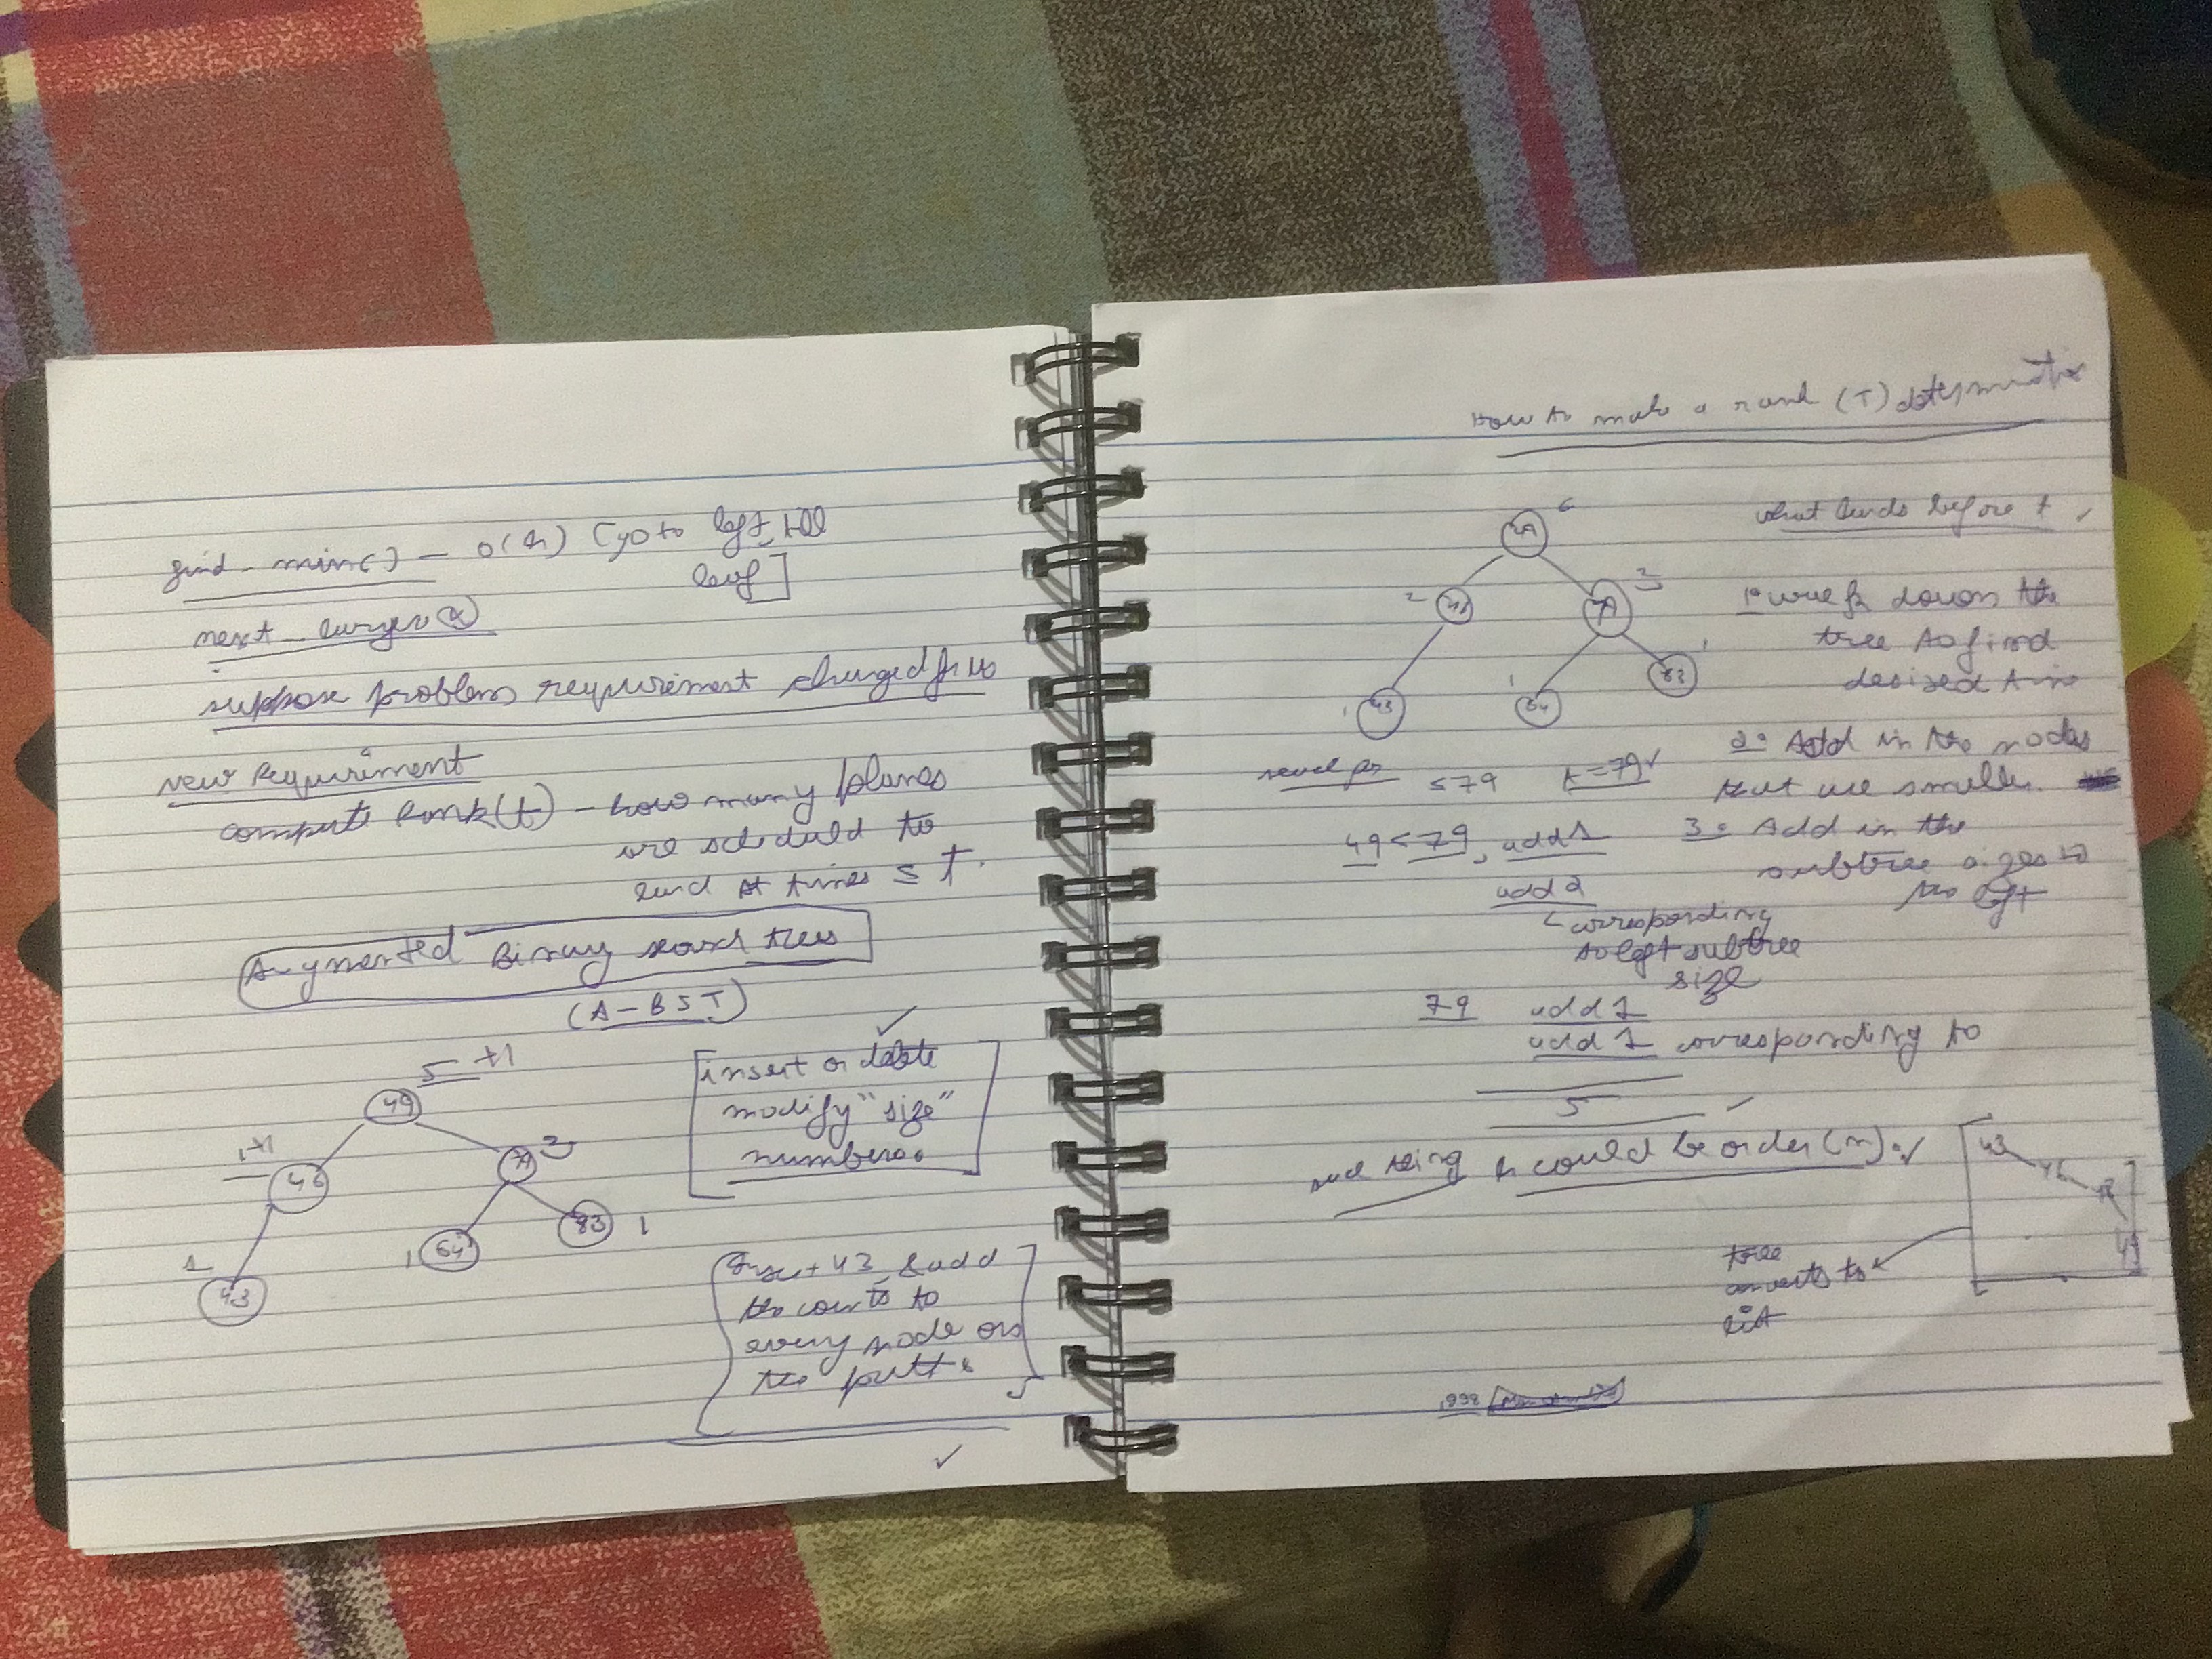 find-min() - O(h) [go to left till
leaf]
next-larger(x)
suppose problem requirement changed for us
New Requirement
compute Rank(t) - how many planes
are scheduled to
land at times ≤ t.
Augmented Binary search trees
(A-BST)
5 +1
49
1+1
46
79 3
1 64
83 1
1
43
[insert or delete
modify "size"
numbers.]
[Insert 43 & add
the counts to
every node on
the path.]
How to make a rank (T)
49 6
2 46
79 3
1 43
1 64
83 1
what lands before t
1. walk down the
tree to find
desired time
2. Add in the nodes
that are smaller.
3. Add in the
subtree sizes to
the left
≤ 79 t = 79 ✓
49 < 79, add 1
add 2
corresponding
to left subtree
size
79 add 1
add 1 corresponding to
5 ✓
bad thing h could be order(n). ✓
[43
46
49]
tree
converts to
list